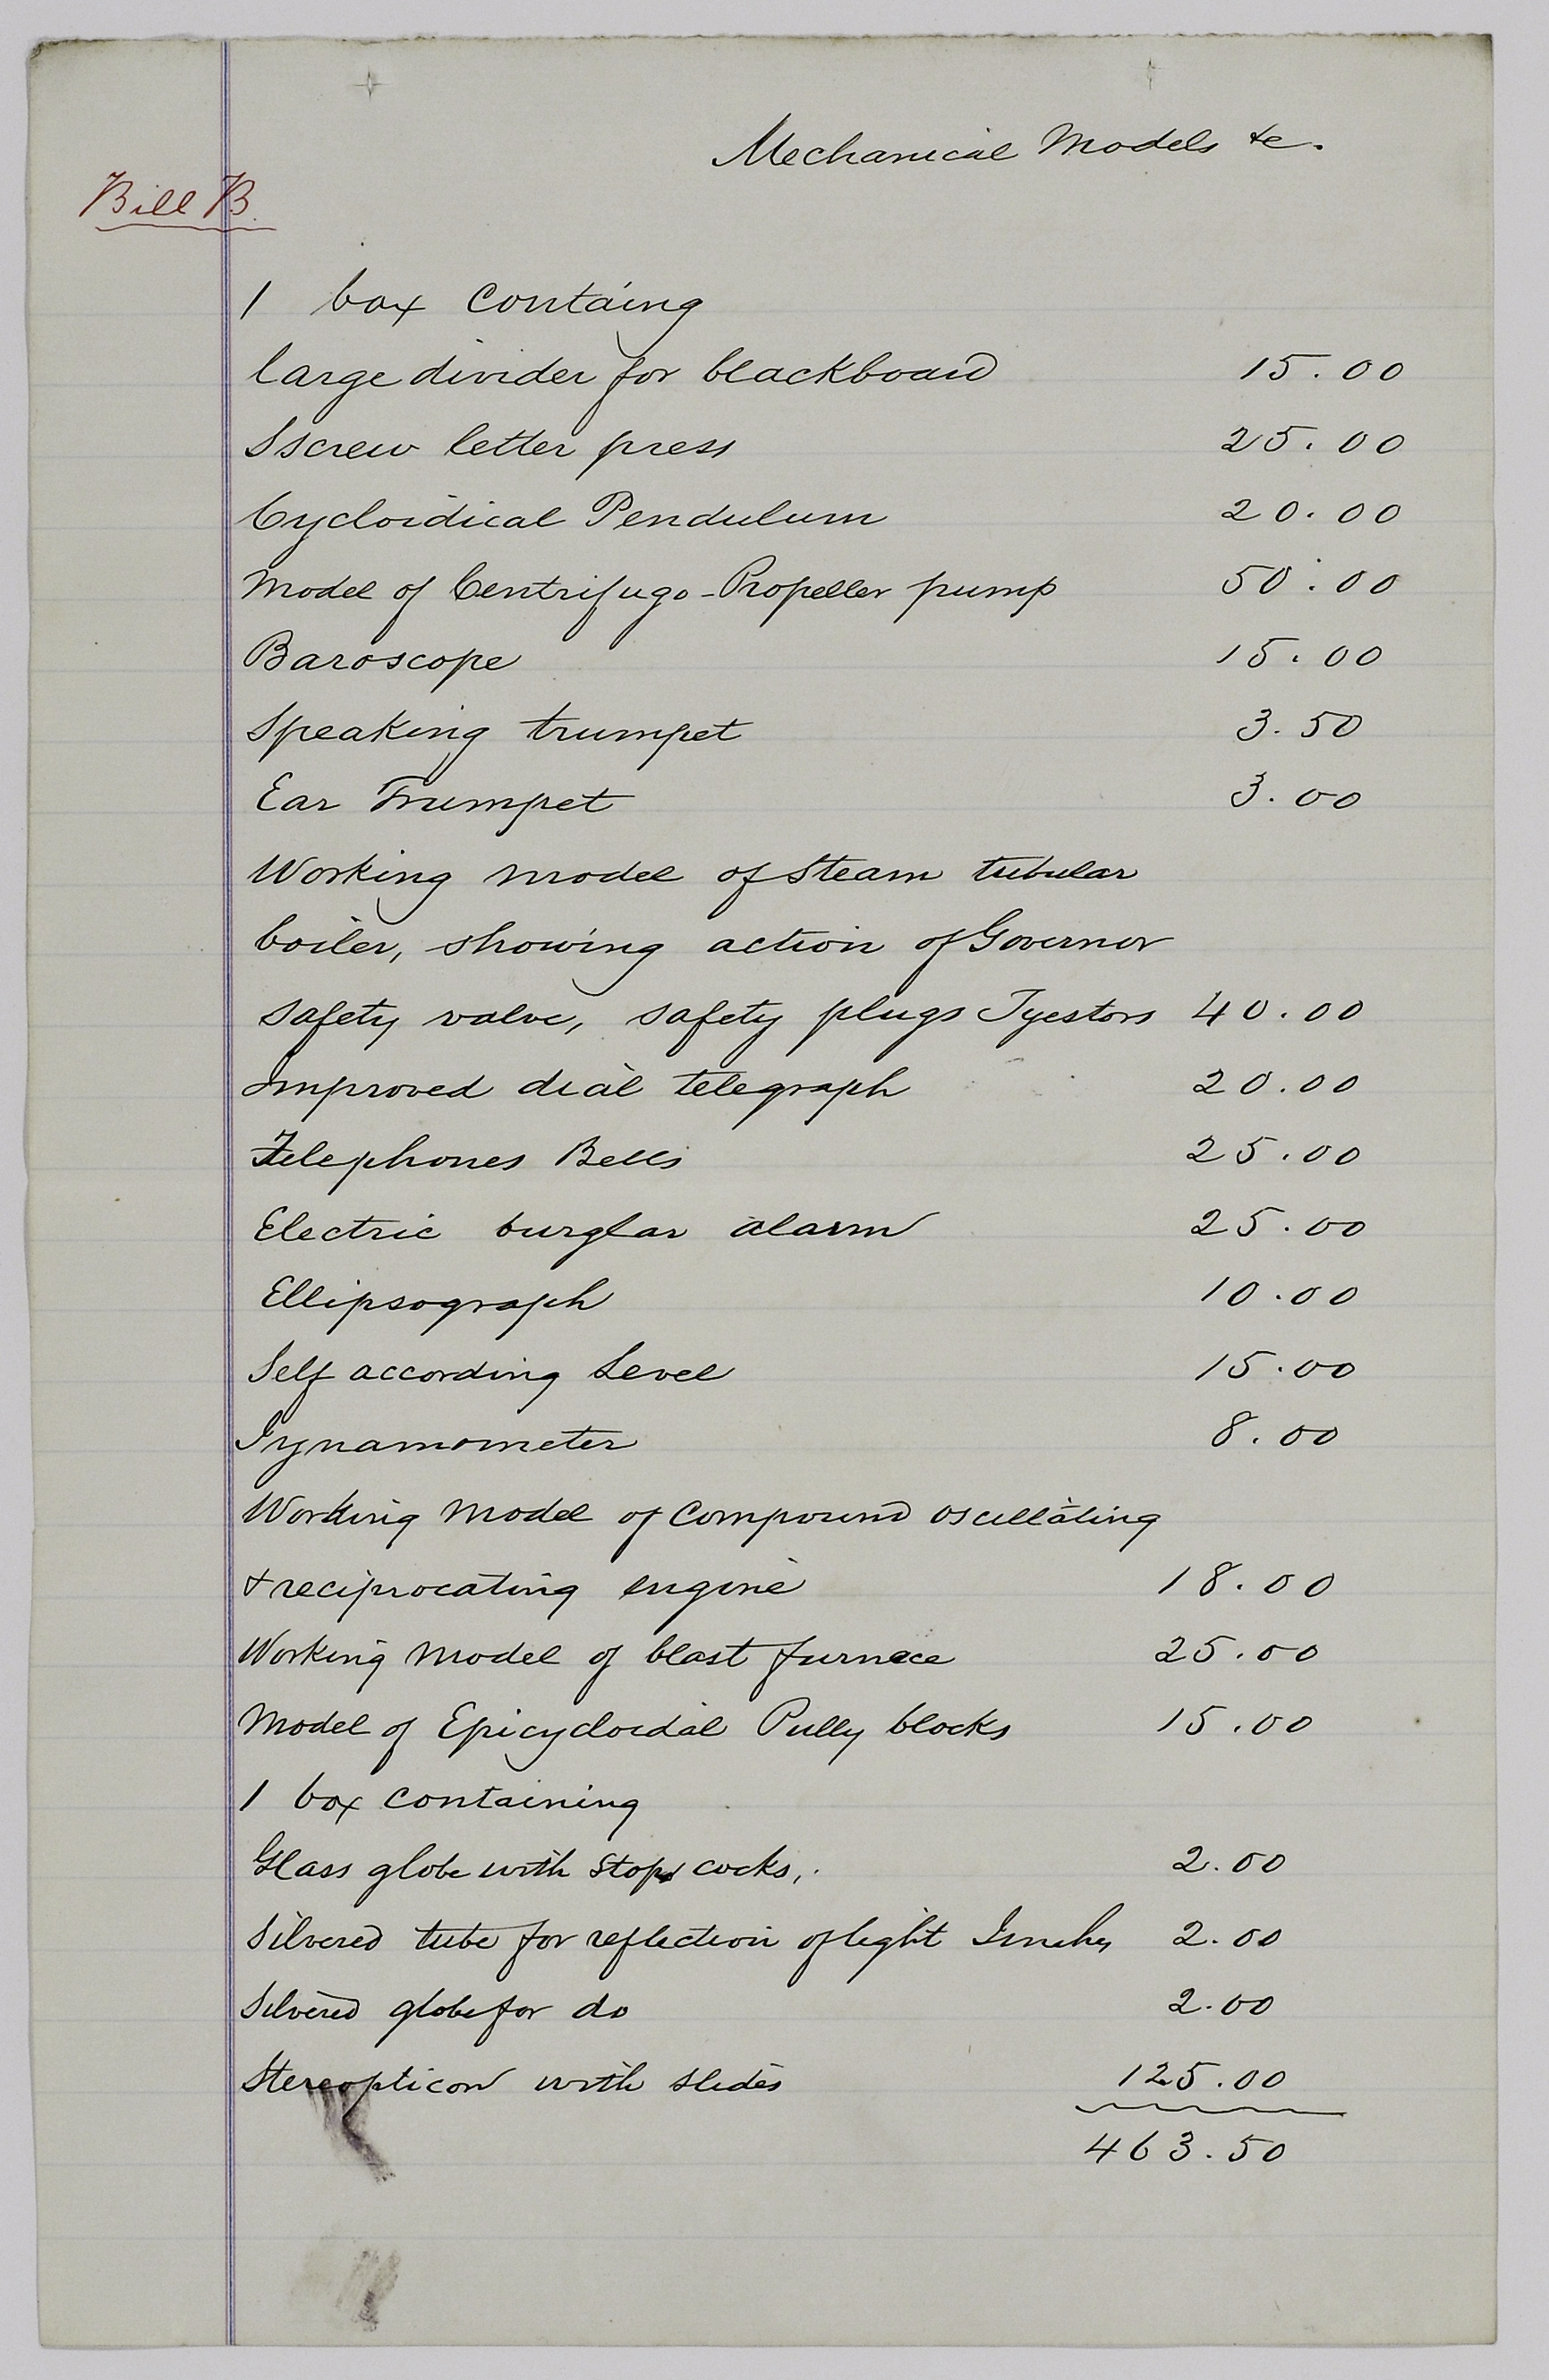 Mechanical Models &c.
Bill B.
1 box Containg
large divider for blackboard 15.00
Sscrew letter press 25.00
Cycloidical Pendulum 20.00
Model of Centrifugo-Propeller pump 50.00
Baroscope 15.00
Speaking trumpet 3.50
Ear Trumpet 3.00
Working model of Steam tubular
boiler, showing action of Governor
safety valve, safety plugs 40.00
Improved dial telegraph 20.00
Telephones Bells 25.00
Electric burglar alarm 25.00
Ellipsograph 10.00
Self according Level 15.00
Dynamometer 8.00
Working Model of Compound oscillating
& reciprocating engine 18.00
Working Model of blast furnace 25.00
Model of Epicycloidal Pully blocks 15.00
1 box containing
Glass globe with stop cocks, 2.00
Silvered tube for reflection of light 2.00
Silvered globe for do 2.00
Stereopticon with slides 125.00
463.50